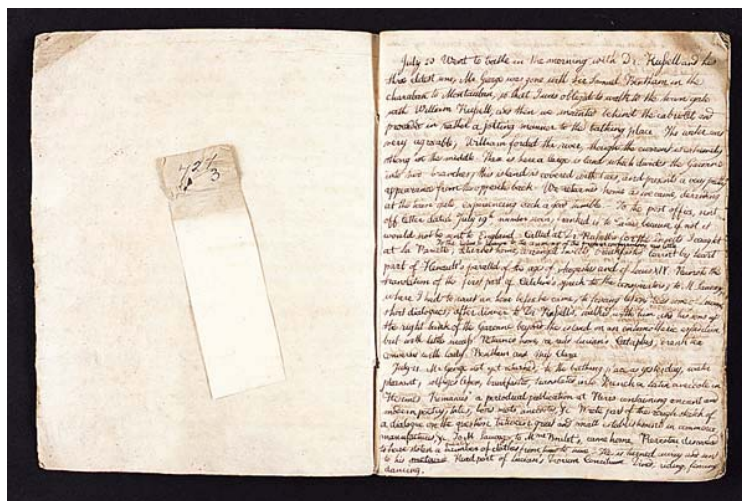 727
3
July 20 Went to bathe in the morning with Dr. Russell and his
three eldest sons, Mr. George was gone with Sir Samuel Bentham in the
charaban to Montauban, so that I was obliged to walk to the town gate
with William Russell, and then we mounted behind the cabriolet and
proceeded in rather a jolting manner to the bathing place. The water was
very agreeable, William forded the river, though the current is extremely
strong in the middle. There is here a large island which divides the Garonne
into two branches, this island is covered with trees, and presents a very pretty
appearance from the opposite bank - We returned home as we came, descending
at the town gate, experiencing each a good tumble - To the post office, sent
off letter dated July 19th number seven, I because if not it
would not be sent to England - Called at Dr. Russell's for the insects I caught
at la Panette,
home, arranged insects, breakfasted, learnt by heart
part of parallel of the age of and of Louis XIV. Rewrote the
translation of the first part of speech to the conspirators; to M. Sauvage
where I had to wait an hour before he came, to fencing lesson
short dialogues, after dinner to Dr. Russell's, walked with him and his sons up
the right bank of the Garonne beyond the island on an entomological expedition
but with little success. Returned home, read Lucian's Cataplus, drank tea
conversed with Lady Bentham and Miss Clara
July 21. Mr. George not yet returned; to the bathing place as yesterday, water
pleasant, solfeges lesson, breakfasted, translated into French a Latin anecdote in
Hermes Romanus a periodical publication at Paris containing ancient and
modern poetry, tales, bons mots anecdotes, &c. Wrote part of the rough sketch of
a dialogue on the question between great and small establishments in commerce
manufactures, &c. To M. Sauvage, to Mme Boulet's, came home,
to have stolen a number of clothes from time to time - He is turned away and sent
to his Read part of Lucian's lives, riding, fencing
dancing.